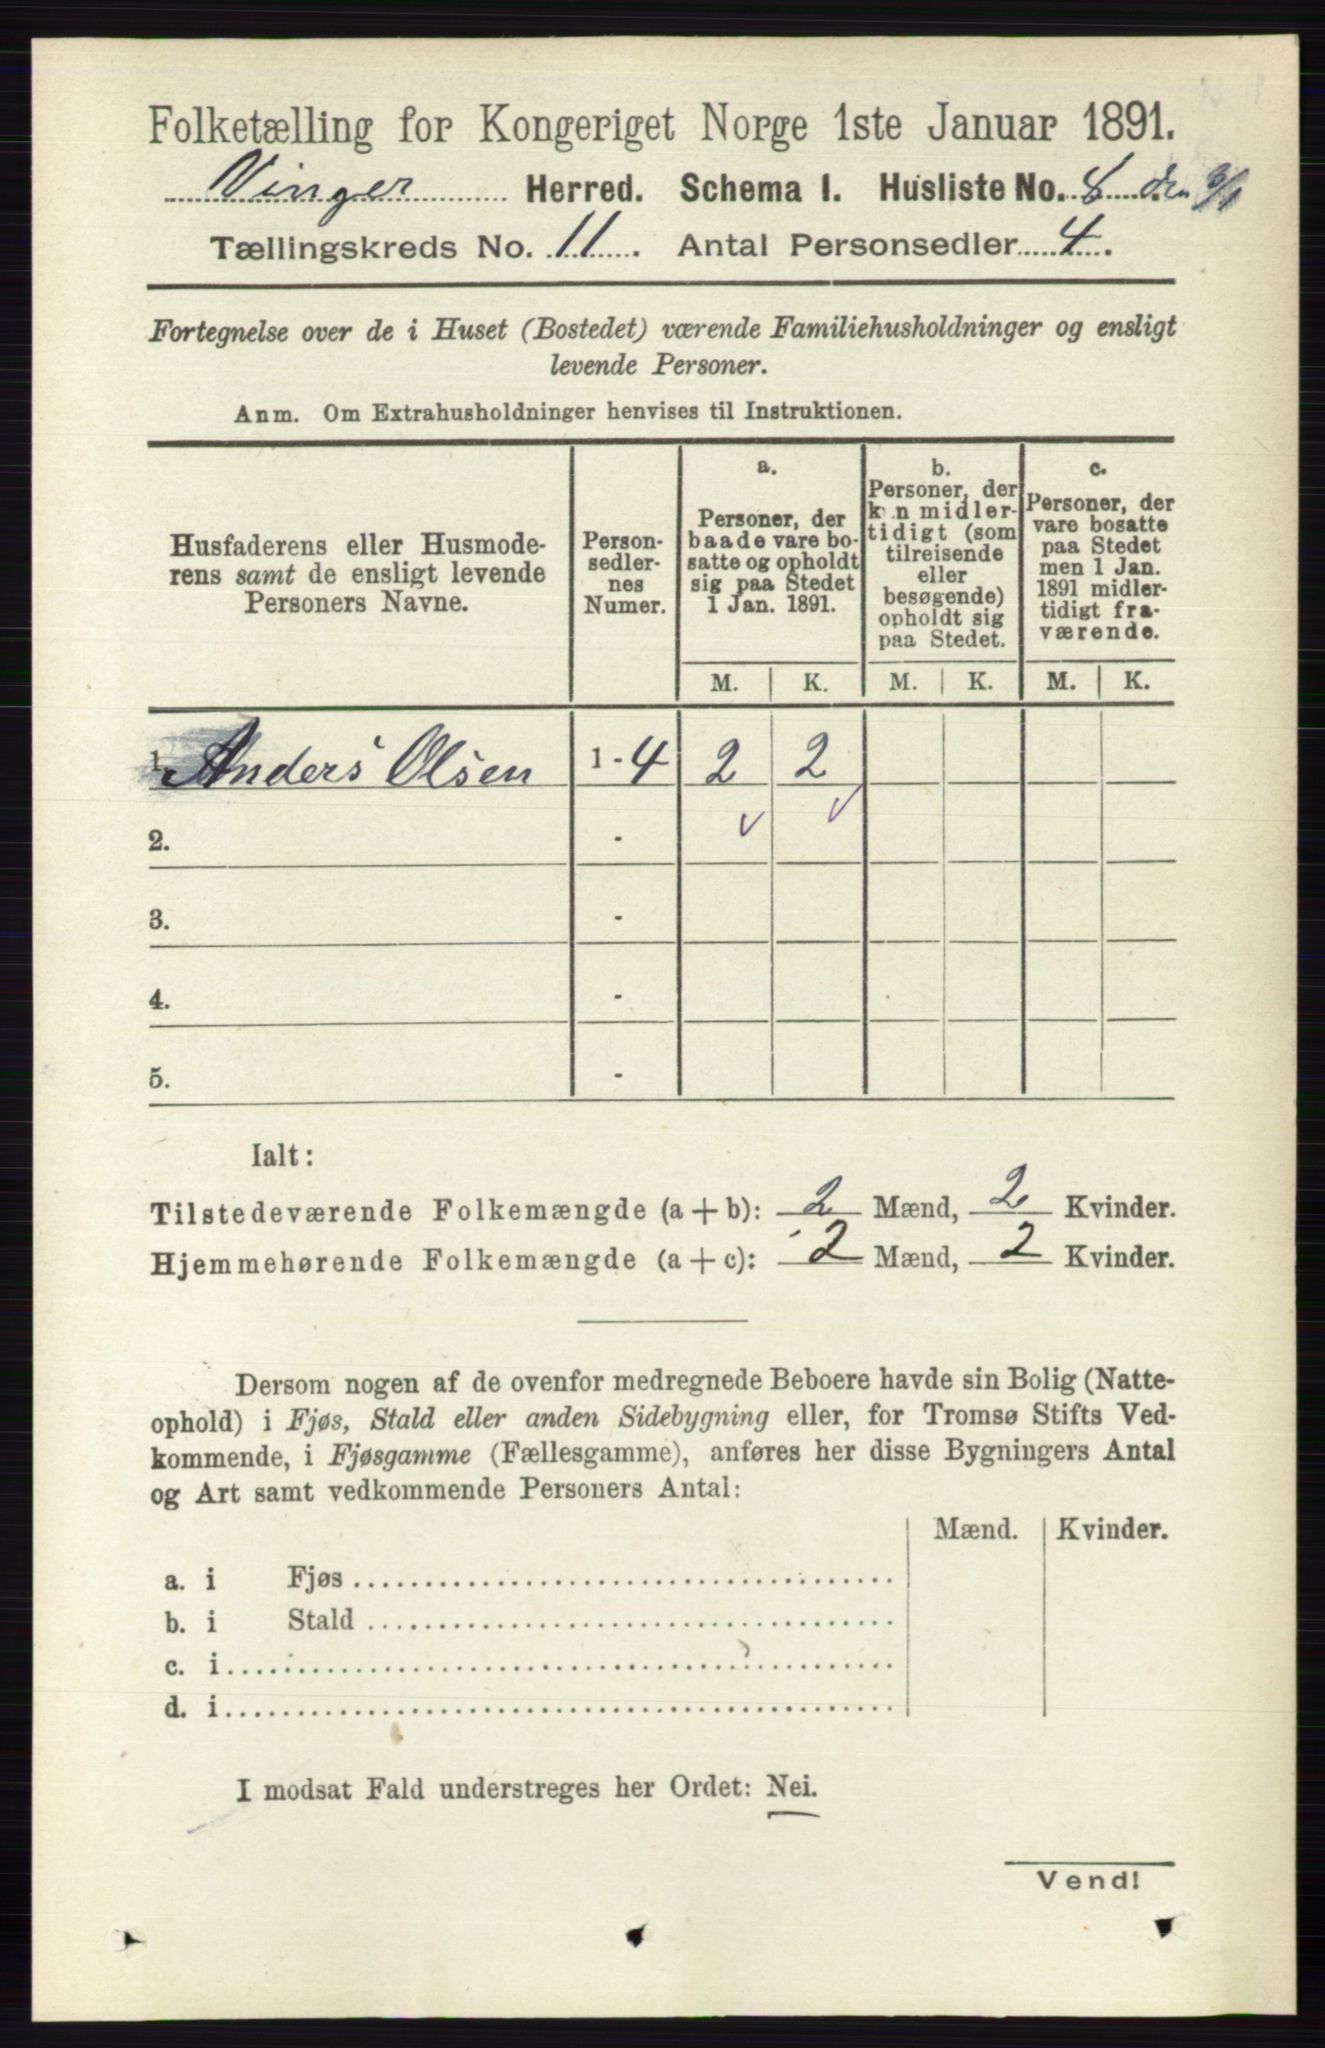 Folketælling for Kongeriget Norge 1ste Januar 1891.
Vinger Herred. Schema I. Husliste No. 8 den 3/1
Tællingskreds No. 11. Antal Personsedler 4.
Fortegnelse over de i Huset (Bostedet) værende Familiehusholdninger og ensligt
levende Personer.
Anm. Om Extrahusholdninger henvises til Instruktionen.
Husfaderens eller Husmode-
rens samt de ensligt levende
Personers Navne.
Person-
sedler-
nes
Numer.
a.
Personer, der
baade vare bo-
satte og opholdt
sig paa Stedet
1 Jan. 1891.
b.
Personer, der
kun midler-
tidigt (som
tilreisende
eller
besøgende)
opholdt sig
paa Stedet.
c.
Personer, der
vare bosatte
paa Stedet
men 1 Jan.
1891 midler-
tidigt fra-
værende.
M. K. M. K. M. K.
1. Anders Olsen 1 - 4 2 2
2. -
3. -
4. -
5. -
Ialt:
Tilstedeværende Folkemængde (a + b): 2 Mænd, 2 Kvinder.
Hjemmehørende Folkemængde (a + c): 2 Mænd, 2 Kvinder.
Dersom nogen af de ovenfor medregnede Beboere havde sin Bolig (Natte-
ophold) i Fjøs, Stald eller anden Sidebygning eller, for Tromsø Stifts Ved-
kommende, i Fjøsgamme (Fællesgamme), anføres her disse Bygningers Antal
og Art samt vedkommende Personers Antal:
Mænd. Kvinder.
a. i Fjøs
b. i Stald
c. i
d. i
I modsat Fald understreges her Ordet: Nei.
Vend!